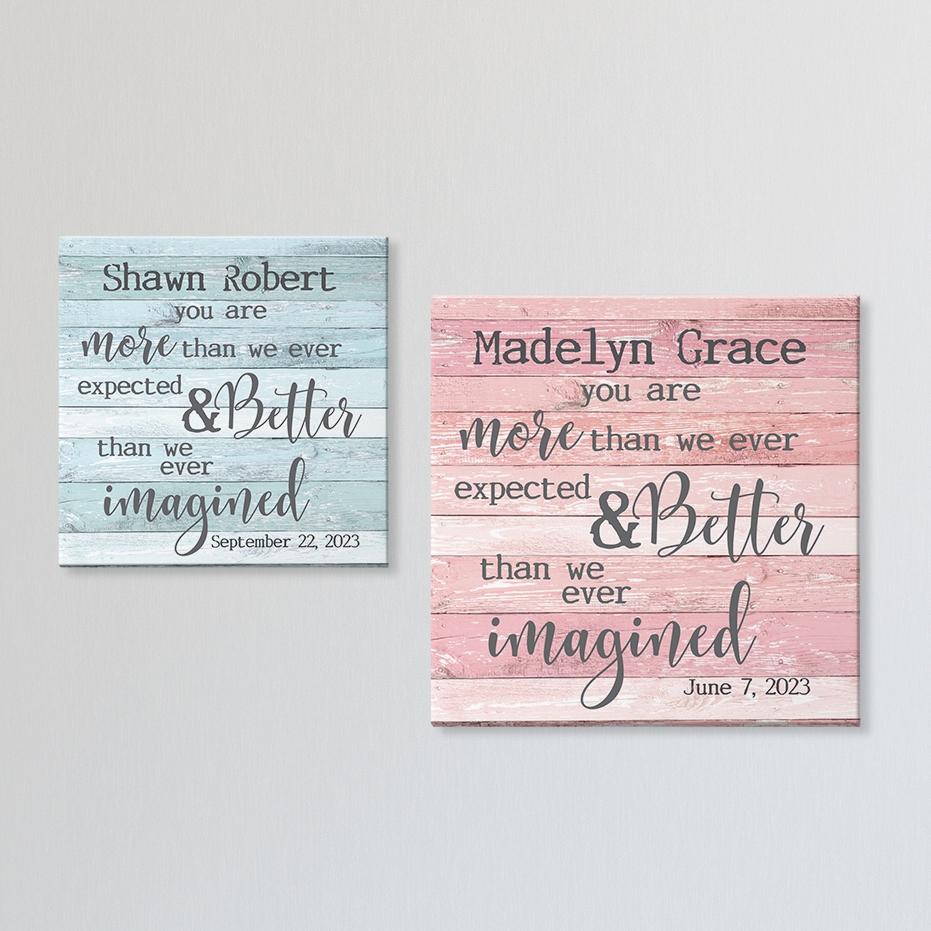 Shawn Robert
you are
more than we ever
expected
& Better
than we
ever
imagined
September 22, 2023
Madelyn Grace
you are
more than we ever
expected
& Better
than we
ever
imagined
June 7, 2023